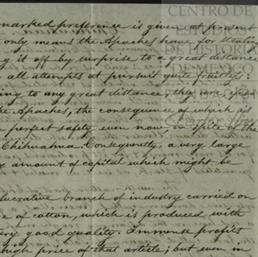 CENTRO DE
DE HISTORIA
marked preference is given at present
only means the Apaches have for stealing
g it off by surprise to a great distance
all attempts at pursuit quite fruitless:
ing to any great distance, they are
the Apaches, the consequence of which is
perfect safety even now, in spite of the
Chihuahua. Consequently, a very large
amount of capital which might be
lucrative branch of industry carried on
e of cotton, which is produced with
very good quality. Immense profits
high price of that article; but even in